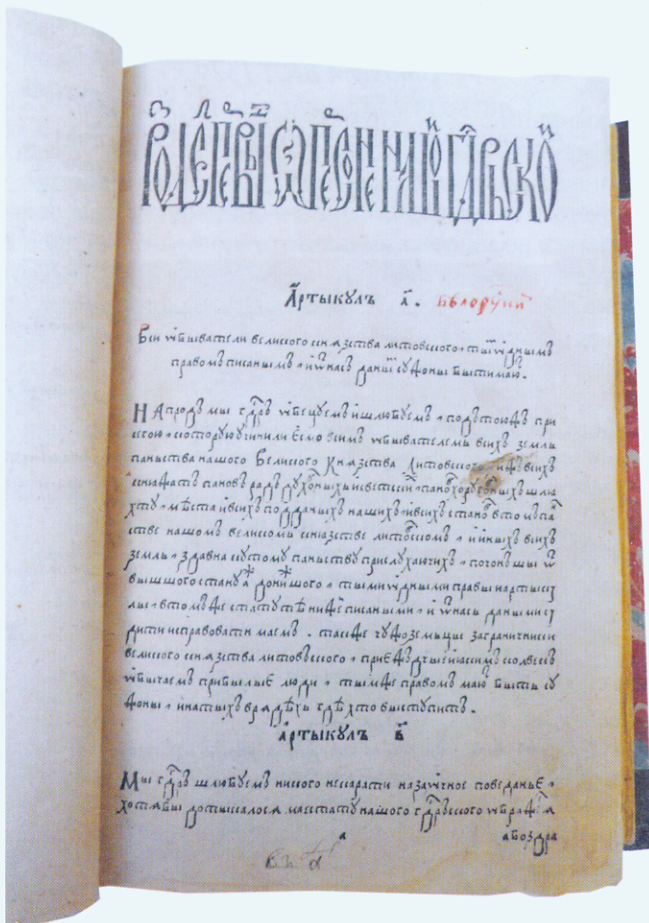 РОЗДЕЛ ПЕРВЫЙ О ПЕРСОНЕ НАШОЙ ГДРСКОЙ
Артыкулъ а҃.
Вси обыватели великого князства литовского, тым одным
правомъ писанымъ, и ѡт насъ даным сужоны быти мают.
Напродъ мы гдръ обецуемъ и шлюбуемъ, подъ тою жъ при
сегою, которую учинили есмо всимъ обывателемъ всихъ земль
панъства нашого Великого Князства Литовского, ижъ всихъ
княжат пановъ радъ духовныхъ и свецкихъ, пановъ хоруговныхъ шля
хту, мѣста и всихъ подданыхъ нашихъ, и всихъ становъ в том пан
стве нашомъ великомъ князстве литовском, и иныхъ всихъ
земль, здавна к тому панъству прислухаючихъ, почонъшы ѡт
вышшого стану аж до нижшого, тыми одными правы и артыку
лы, в томъ же статутѣ нижей писаными, и ѡт насъ даными су
дити и справовати маемъ. также чужоземъцы заграничники
великого князства литовъского, приеждчые и якимъ колвекъ
обычаемъ прибылые люди, тымже правомъ мают быть су
жоны, и на тыхъ врядѣхъ гдѣ хто выступитъ.
Артыкулъ в҃
Мы гдръ шлюбуемъ никого не карати на заочное поведанье,
хотябы дотыкалося маестату нашого гдръского ображенья
або здра
а